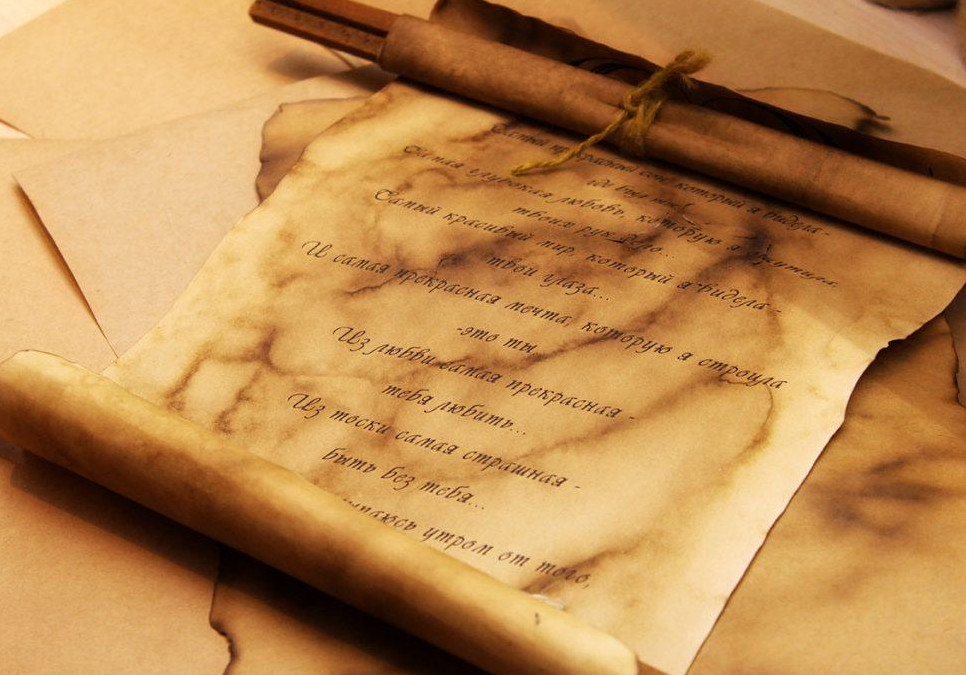 Самый прекрасный сон, который я видела -
где был
Самая глубокая любовь, которую я
твоих рук дело...
Самый красивый мир, который я видела -
твои глаза...
И самая прекрасная мечта, которую я строила
-это ты
Из любви самая прекрасная -
тебя любить...
Из тоски самая страшная -
быть без тебя...
утром от того,